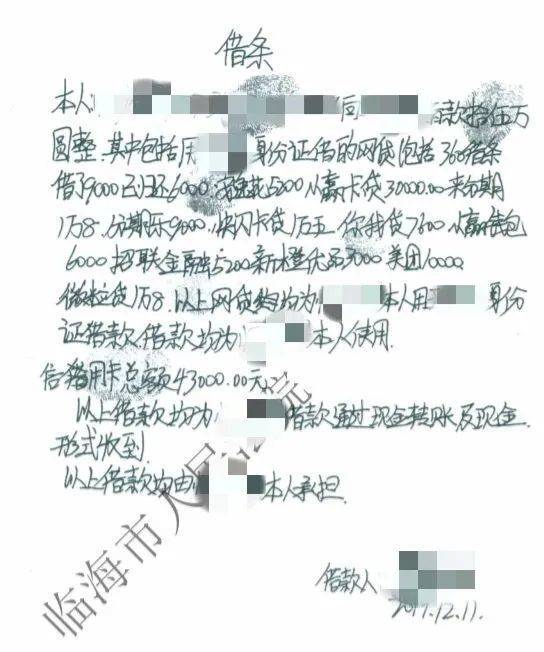 借条
本人 向 款拾伍万
圆整.其中包括用 身份证借的网贷(包括360借条
借了9000已归还6000 花5200从赢卡贷30000.00来分期
1万8.分期乐9000.快闪卡贷1万五.你我贷7600.从赢钱包
6000招联金融5200新橙优品3000美团10000
微粒贷1万8.以上网贷均为 本人用 身份
证借款.借款均为 本人使用.
信用卡总额43000.00元.
以上借款均为 借款通过现金转账及现金
形式收到.
以上借款均由 本人承担.
借款人
2017.12.11.
临海市人民法院